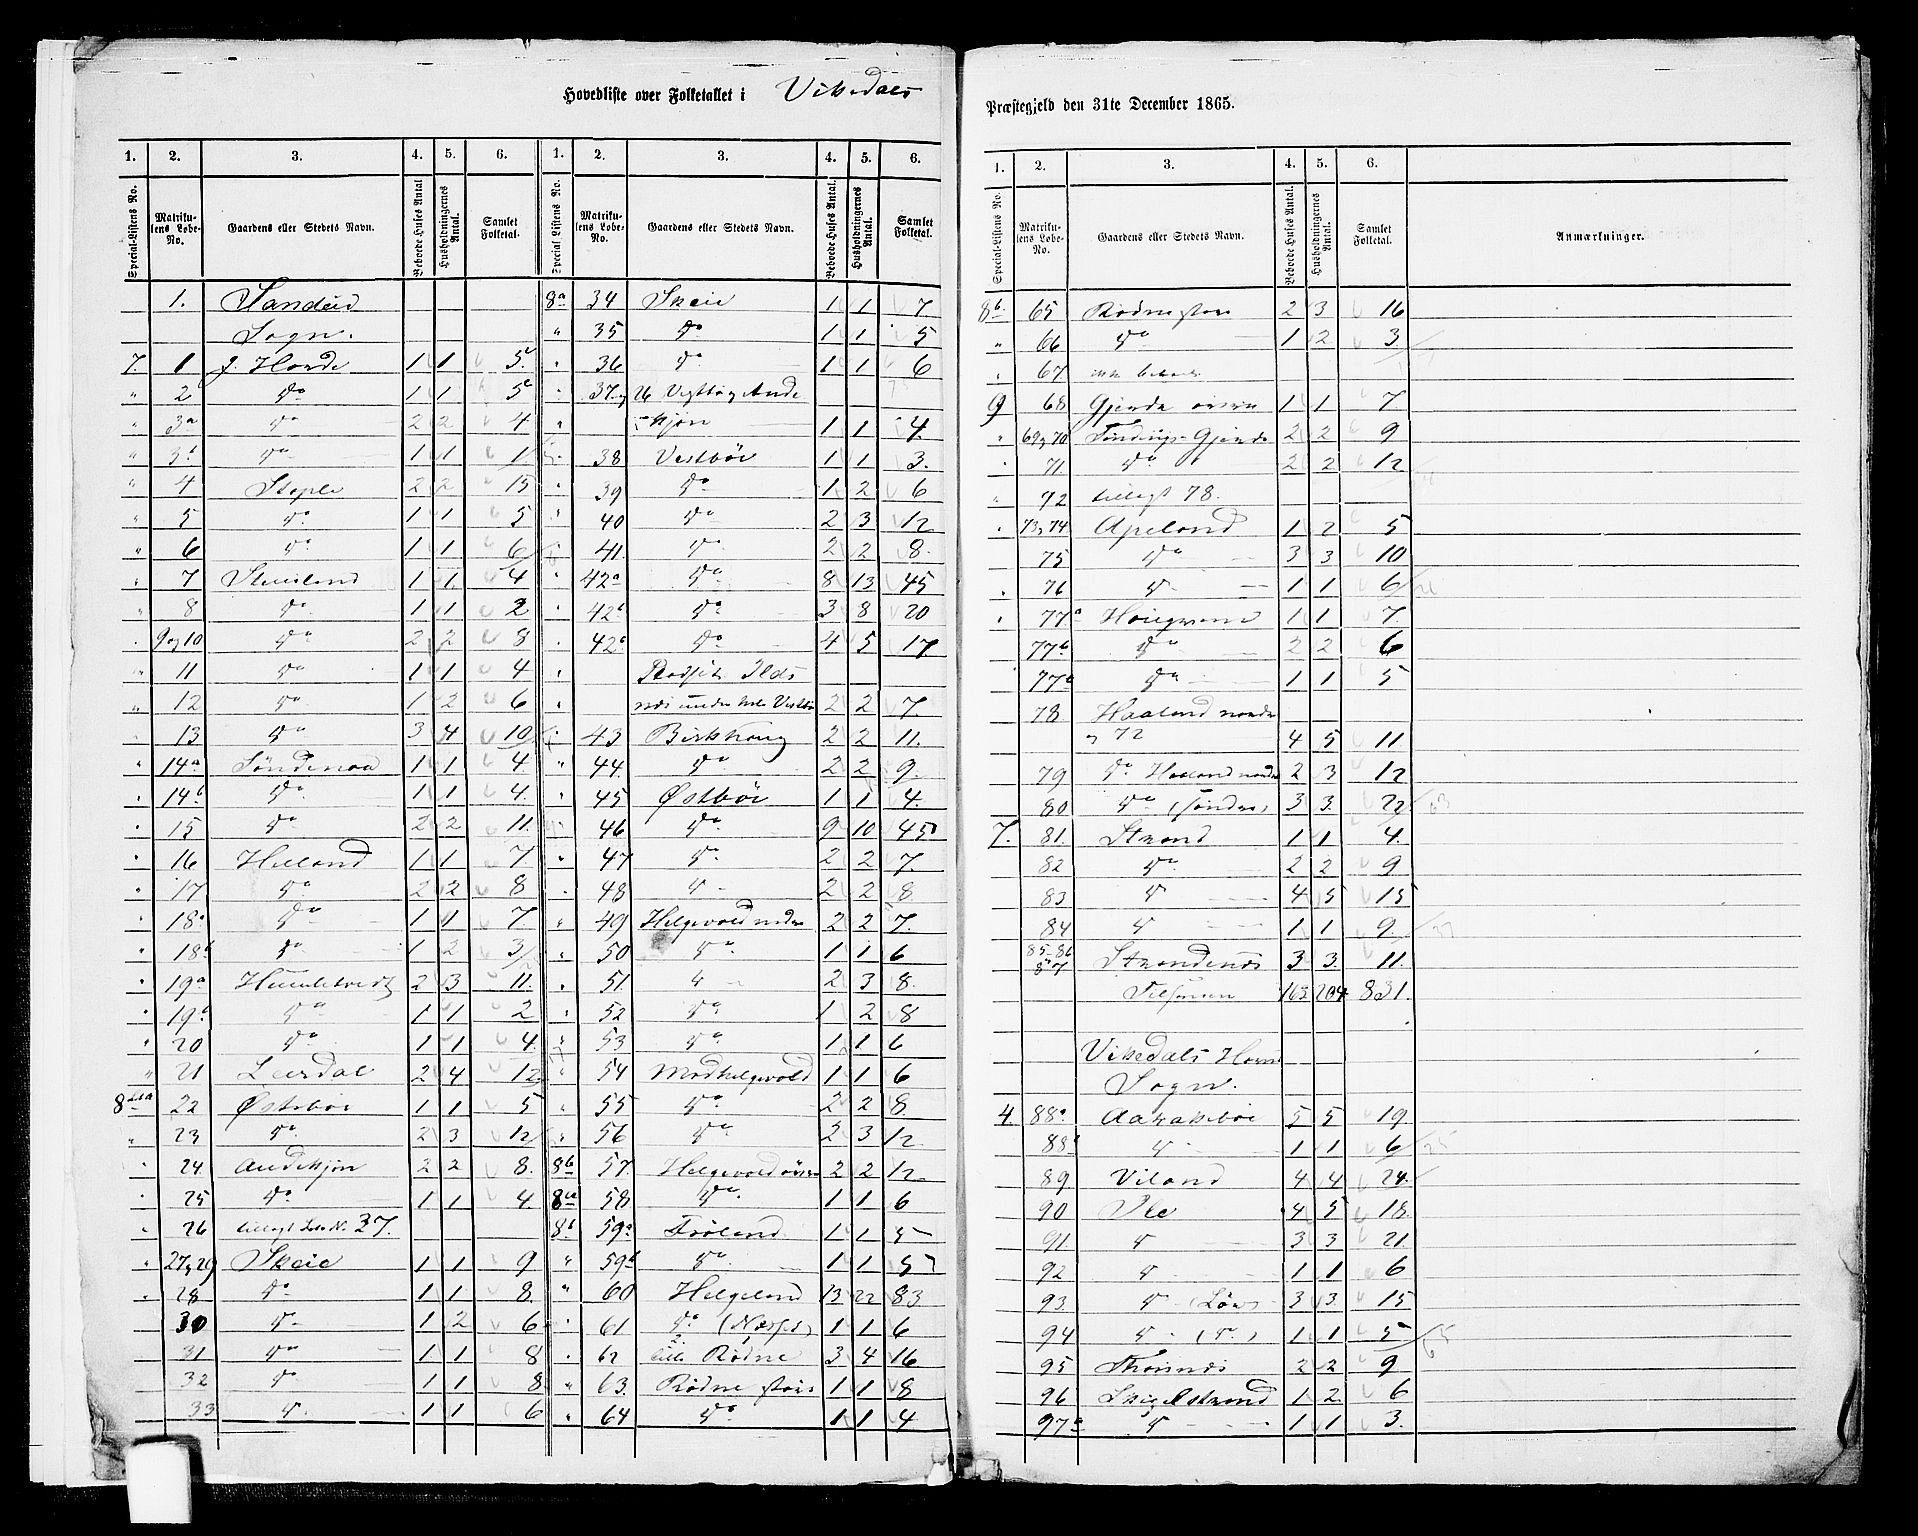 Hovedliste over Folketallet i Vikedals
1. 2. 3. 4. 5. 6. 1. 2. 3. 4. 5. 6.
Special-Listens No. Matrikulens Løbe-No. Gaardens eller Stedets Navn. Beboede Huses Antal Husholdningernes Antal. Samlet Folketal. Special Listens No. Matrikulens Løbe-No. Gaardens eller Stedets Navn. Beboede Huses Antal. Husholdningernes Antal. Samlet Folketal.
1. Sandeid 8a 34 Skeie 1 1 7.
Sogn. " 35 do 1 1 5
7. 1 Horde 1 1 5. 36 do 1 1 6
" 2 do 1 1 5 37 og 26 Vestbø og Ande
" 3a do 2 2 4 kjøn 1 1 4.
" 3b do 1 1 1 38 Vestbøe 1 1 3.
" 4 Støple 2 2 15 39 do 1 2 6
" 5 do 1 1 5 40 do 2 3 12
" 6 do 1 1 6 41 do 2 2 8.
" 7 1 1 4 42a do 8 13 45
" 8 do 1 1 2 42b do 3 8 20
9 og 10 do 2 2 8 42c do 4 5 17
" 11 do 1 1 4 Pladset Ilds
" 12 do 1 2 6 næs under hele Vestbø 2 2 7.
13 do 3 4 10 43 Birkhoug 2 2 11.
" 14a Søndenaa 1 1 4. " 44 do 2 2 9.
14b do 1 1 4. 45 Østbøe 1 1 4.
15 do 2 2 11. 46 do 9 10 45
16 Heiland 1 1 7 47 do 2 2 7.
17 do 2 2 8 48 do 2 2 8
18a do 1 1 7. 49 Helgevold nedre 2 2 7.
18b do 1 2 3 50 do 1 1 6
19a Humlekvedt 2 3 11. 51 do 2 3 8.
19b do 1 1 2 52 do 1 2 8
20 do 1 1 4. 53 do 1 1 6
" 21 Leirdal 2 4 12 54 Modhelgevold 1 1 6
8 Litr a 22 Østebøe 1 1 5 55 do 2 2 8.
" 23 do 2 3 12 56 do 2 3 12
24 Andekjøn 2 2 8. 8b 57. Helgevold øvre 2 2 12
25 do 1 1 4. 8a 58 do 1 1 6
26 tillagt Løbe N. 37. 8b 59a Frøland 1 1 5
27 og 29 Skeie 1 1 9 " 59b do 1 1 5
28 do 1 1 8. " 60 Helgeland 13 22 83
30 do 1 2 6 61 do (Næsset) 1 1 6
31 do 1 1 8 62 lille Rødne 3 4 16
32 do 1 1 8 " 63. Rødne store 1 1 8
33 do 1 1 6 64 do 1 1 4
Præstegjeld den 31te December 1865.
1. 2. 3. 4. 5. 6.
Special-Listens No. Matrikulens Løbe-No. Gaardens eller Stedets Navn. Beboede Huses Antal. Husholdningernes Antal. Samlet Folketal. Anmærkninger.
8b. 65 Rødne store 2 3 16
" 66 do 1 2 3
67 ikke beboet
9 68 Gjerde øvre 1 1 7
69 og 70 Findings-Gjerde 2 2 9
71. do 2 2 12
72 tillagt 78.
73 og 74 Apeland 1 2 5
75 do 3 3 10
76 do 1 1 6
77a Hougesand 1 1 7.
77b do 2 2 6
77c do 1 1 5
78 Haaland nordre
og 72 4 5 11
79 do Haaland nordre 2 3 12
80 do (søndre) 3 3. 22
7. 81. Strand 1 1 4.
82 do 2 2 9
83 do 4 5 15
84 do 1 1 9.
85-86 87 Strandenæs 3 3. 11.
Tilsammen 163 204 831.
Vikedals Hoved
Sogn.
4. 88a Aarakebøe 5 5 19
88b do 1 1 6
89 Viland 4 4 24.
90 Øle 4 5 18.
91. do 3 3 21.
92 do 1 1 6
93. do 3 3 15
94 do 1 1 5
95 Thornæs 2 2 9
96 Skigelstrand 1 2. 6
97a do 1 1 3.